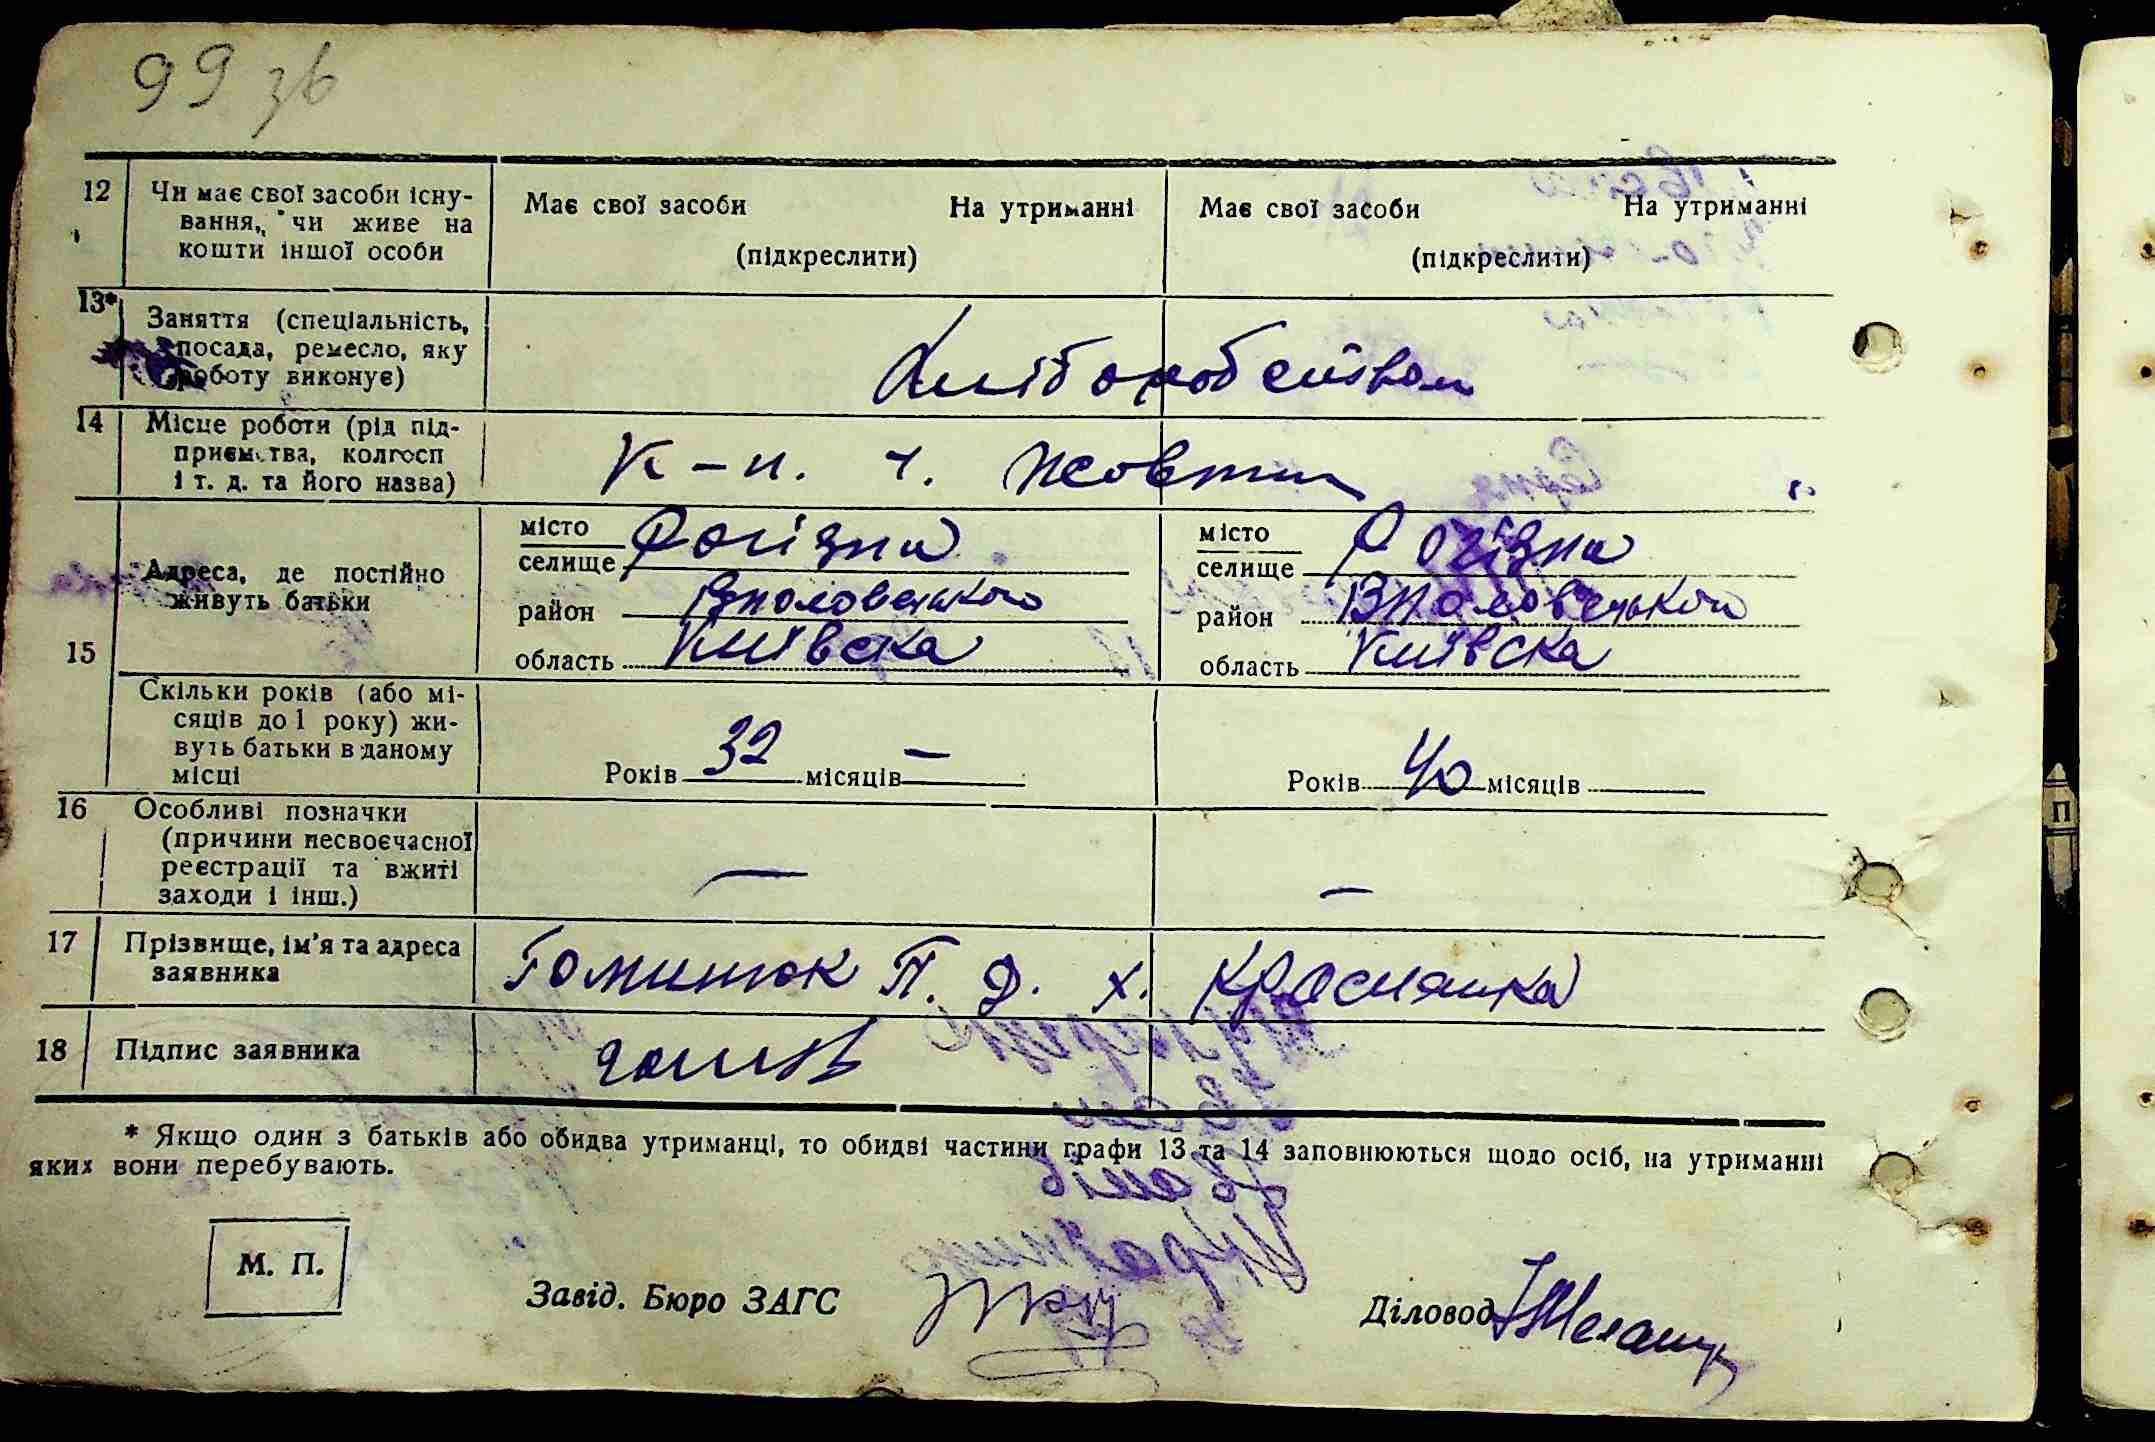 99 зв
12 Чи має свої засоби існу-
вання, чи живе на
кошти іншої особи
Має свої засоби На утриманні
(підкреслити)
Має свої засоби На утриманні
(підкреслити)
13* Заняття (спеціальність,
посада, ремесло, яку
роботу виконує)
14 Місце роботи (рід під-
приємства, колгосп
і т. д. та його назва)
К-п. ч. Жовтн
15 Адреса, де постійно
живуть батьки
місто
селище Рогізна
район
область Київска
місто
селище Рогізна
район
область Київска
Скільки років (або мі-
сяців до 1 року) жи-
вуть батьки в даному
місці
Років 32 місяців —
Років 40 місяців
16 Особливі позначки
(причини несвоєчасної
реєстрації та вжиті
заходи і інш.)
—
—
17 Прізвище, ім'я та адреса
заявника
Гоминюк П. Д. х. Краснянка
18 Підпис заявника
* Якщо один з батьків або обидва утриманці, то обидві частини графи 13 та 14 заповнюються щодо осіб, на утриманні
яких вони перебувають.
М. П.
Завід. Бюро ЗАГС
Діловод